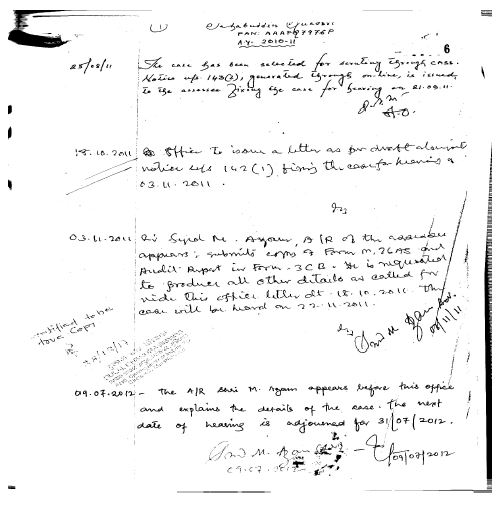 (1)
PAN: 
A.Y. 2010-11
6
25/08/11
The case has been selected for scrutiny through CASS.
Notice u/s 143(2), generated through on-line, is issued
to the assessee fixing the case for hearing on 21.09.11.
18.10.2011
Office to issue a letter as per draft along with
notice u/s 142(1) fixing the case for hearing on
03.11.2011.
03.11.2011
Sri Syed M. Azam, A/R of the assessee
appears, submits copy of Form No. 26AS and
Audit Report in Form-3CB. He is requested
to produce all other details as called for
vide this office letter dt. 18.10.2011. The
case will be heard on 22-11-2011.
03/11/11
Certified to be
true Copy
09.07.2012 - The A/R Shri M. Azam appears before this office
and explains the details of the case. The next
date of hearing is adjourned for 31/07/2012.
09/07/2012